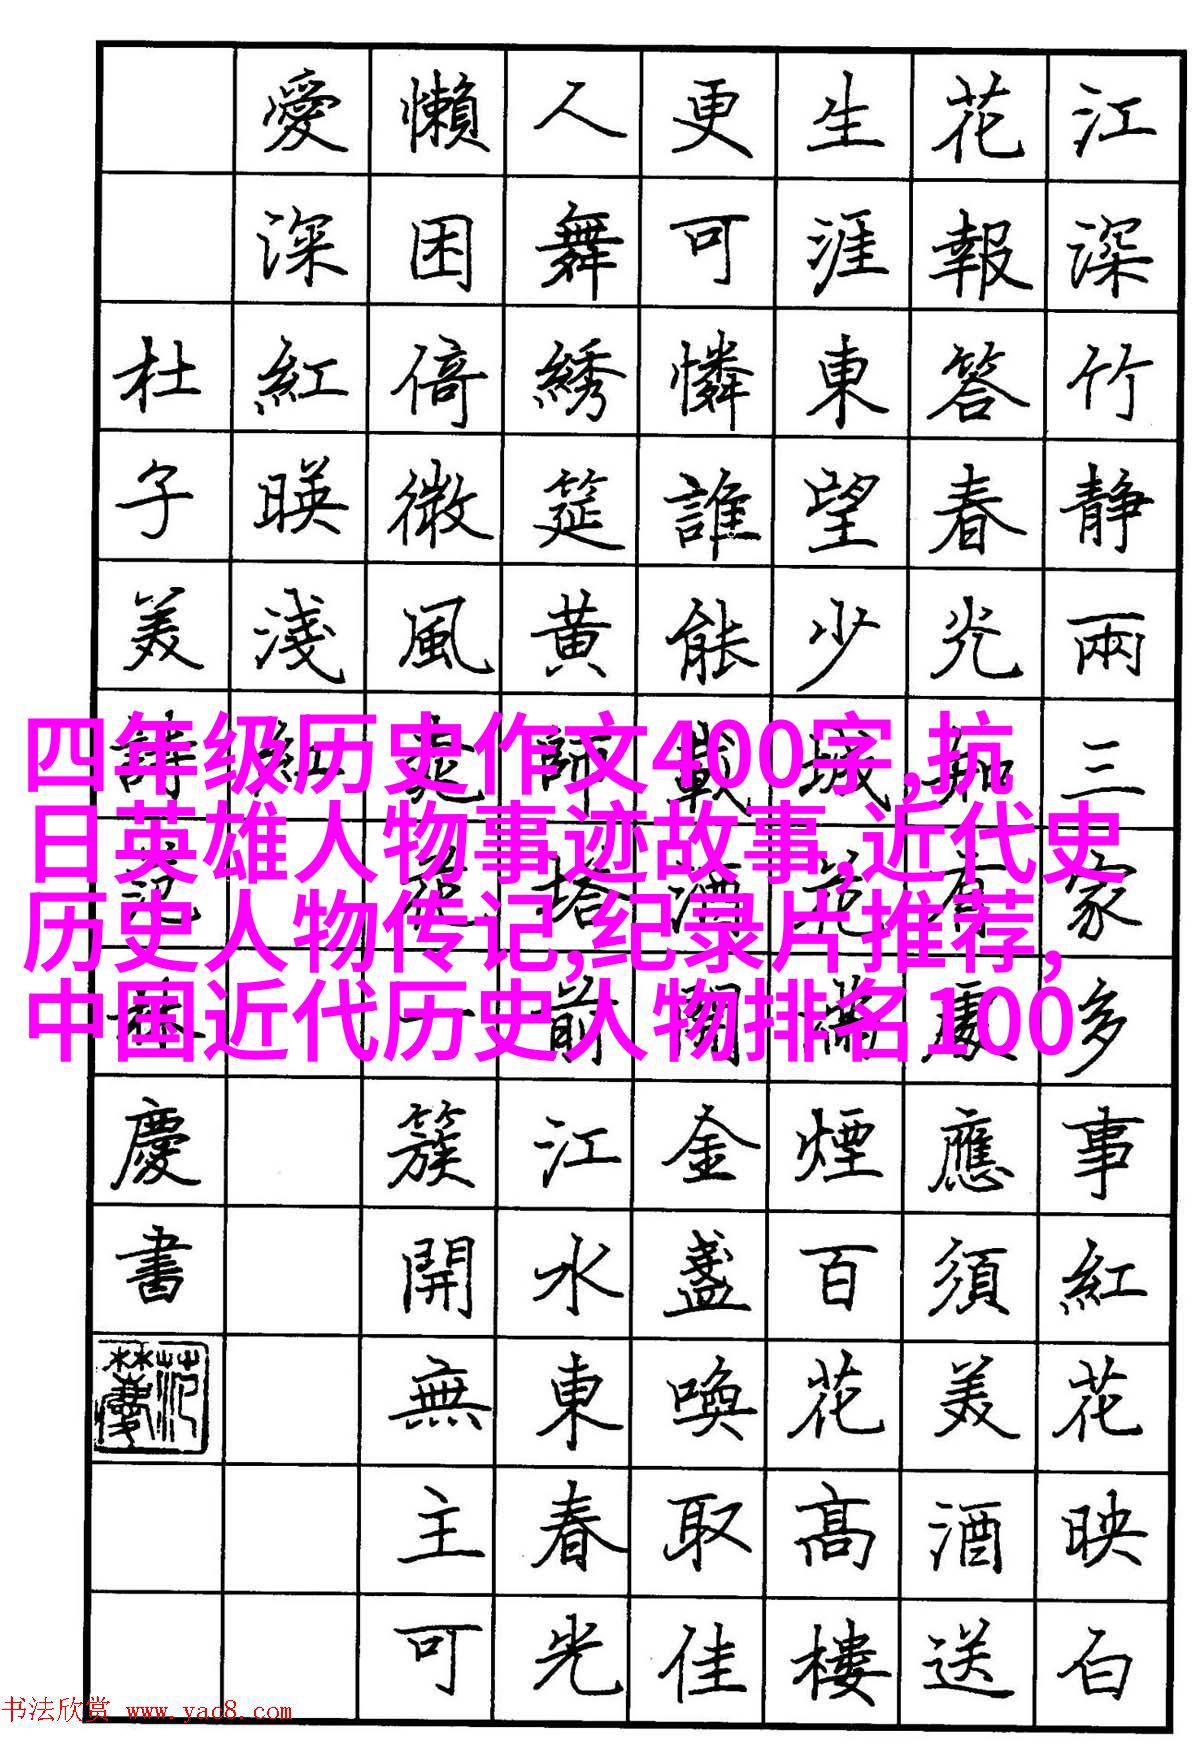 江深竹静兩三家多事紅花映白
花報答春光知有處應須美酒送
生涯東望少城花滿煙百花高樓
更可憐誰能載酒開金盞喚取佳
人舞綉筵黄師塔前江水東春光
懶困倚微風桃花一簇開無主可
愛深紅暎淺紅
杜子美詩范林慶書
四年级历史作文400字,抗
日英雄人物事迹故事,近代史
历史人物传记,纪录片推荐,
中国近代历史人物排名100
书法欣赏 www.yac8.com